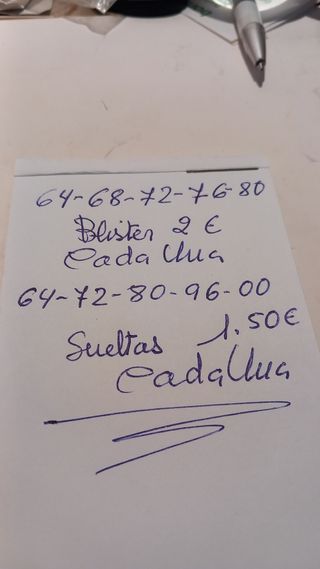 64-68-72-76-80
Blister 2 €
Cada Una
64-72-80-96-00
Sueltas 1.50€
Cada Una